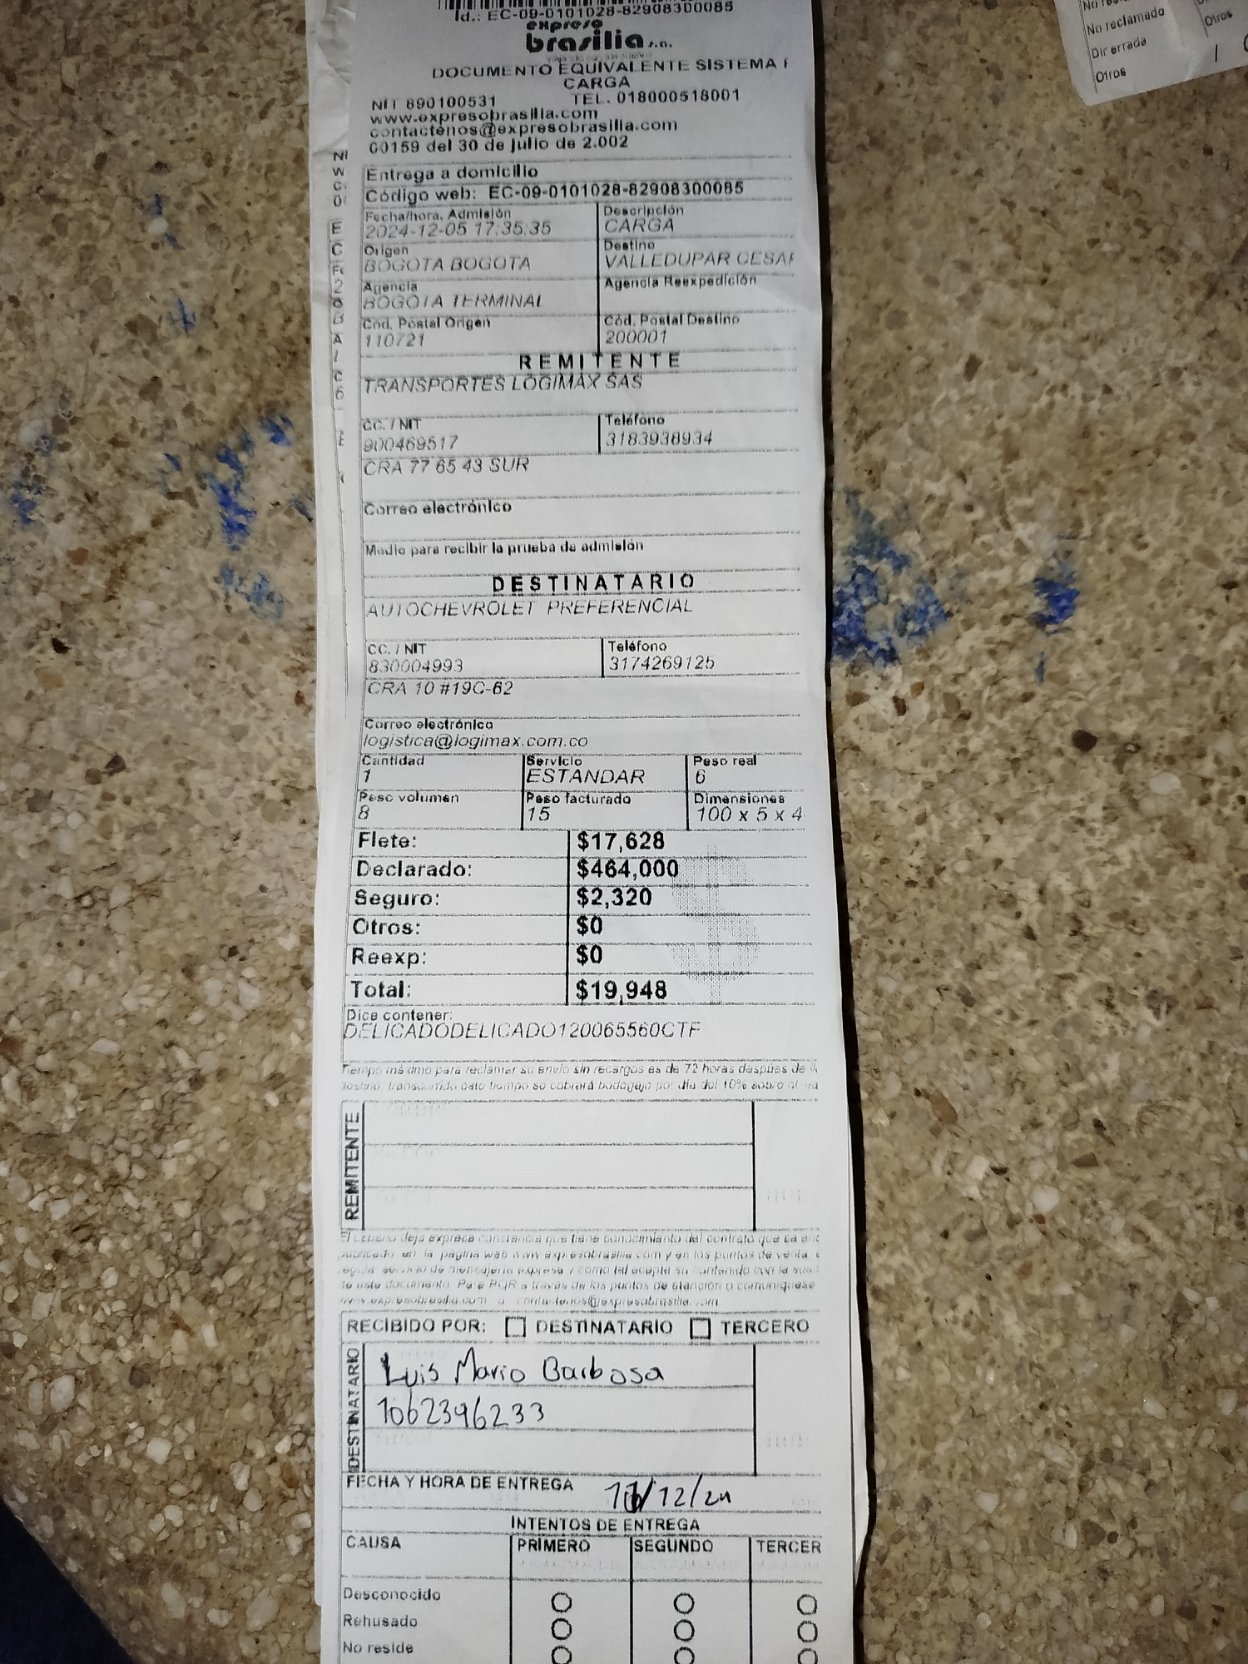 Id.: EC-09-0101028-82908300085
expreso
brasilia s.a.
DOCUMENTO EQUIVALENTE SISTEMA
CARGA
NIT 890100531 TEL. 018000518001
www.expresobrasilia.com
contactenos@expresobrasilia.com
00159 del 30 de julio de 2.002
Entrega a domicilio
Código web: EC-09-0101028-82908300085
Fecha/hora. Admisión Descripción
2024-12-05 17:35:35 CARGA
Origen Destino
BOGOTA BOGOTA VALLEDUPAR CESAR
Agencia Agencia Reexpedición
BOGOTA TERMINAL
Cód. Postal Origen Cód. Postal Destino
110721 200001
REMITENTE
TRANSPORTES LOGIMAX SAS
CC. / NIT Teléfono
900469517 3183938934
CRA 77 65 43 SUR
Correo electrónico
Medio para recibir la prueba de admisión
DESTINATARIO
AUTOCHEVROLET PREFERENCIAL
CC. / NIT Teléfono
830004993 3174269125
CRA 10 #19C-62
Correo electrónico
logistica@logimax.com.co
Cantidad Servicio Peso real
1 ESTANDAR 6
Peso volumen Peso facturado Dimensiones
8 15 100 x 5 x 4
Flete: $17,628
Declarado: $464,000
Seguro: $2,320
Otros: $0
Reexp: $0
Total: $19,948
Dice contener:
DELICADODELICADO120065560CTF
Tiempo máximo para reclamar su envío sin recargos es de 72 horas despues de
destino, transcurrido este tiempo se cobrará bodegaje por día del 10% sobre el
REMITENTE
El usuario deja expresa constancia que tiene conocimiento del contrato que se
publicado en la pagina web www.expresobrasilia.com y en los puntos de venta,
servicio de mensajería expresa y como tal acepta su contenido con la
este documento. Para PQR a través de los puntos de atención o comuníquese
www.expresobrasilia.com o contactenos@expresobrasilia.com
RECIBIDO POR: DESTINATARIO TERCERO
DESTINATARIO
Luis Mario Barbosa
1062396233
FECHA Y HORA DE ENTREGA /12/24
INTENTOS DE ENTREGA
CAUSA PRIMERO SEGUNDO TERCER
Desconocido
Rehusado
No reside
No reclamado
Dir errada Otros
Otros